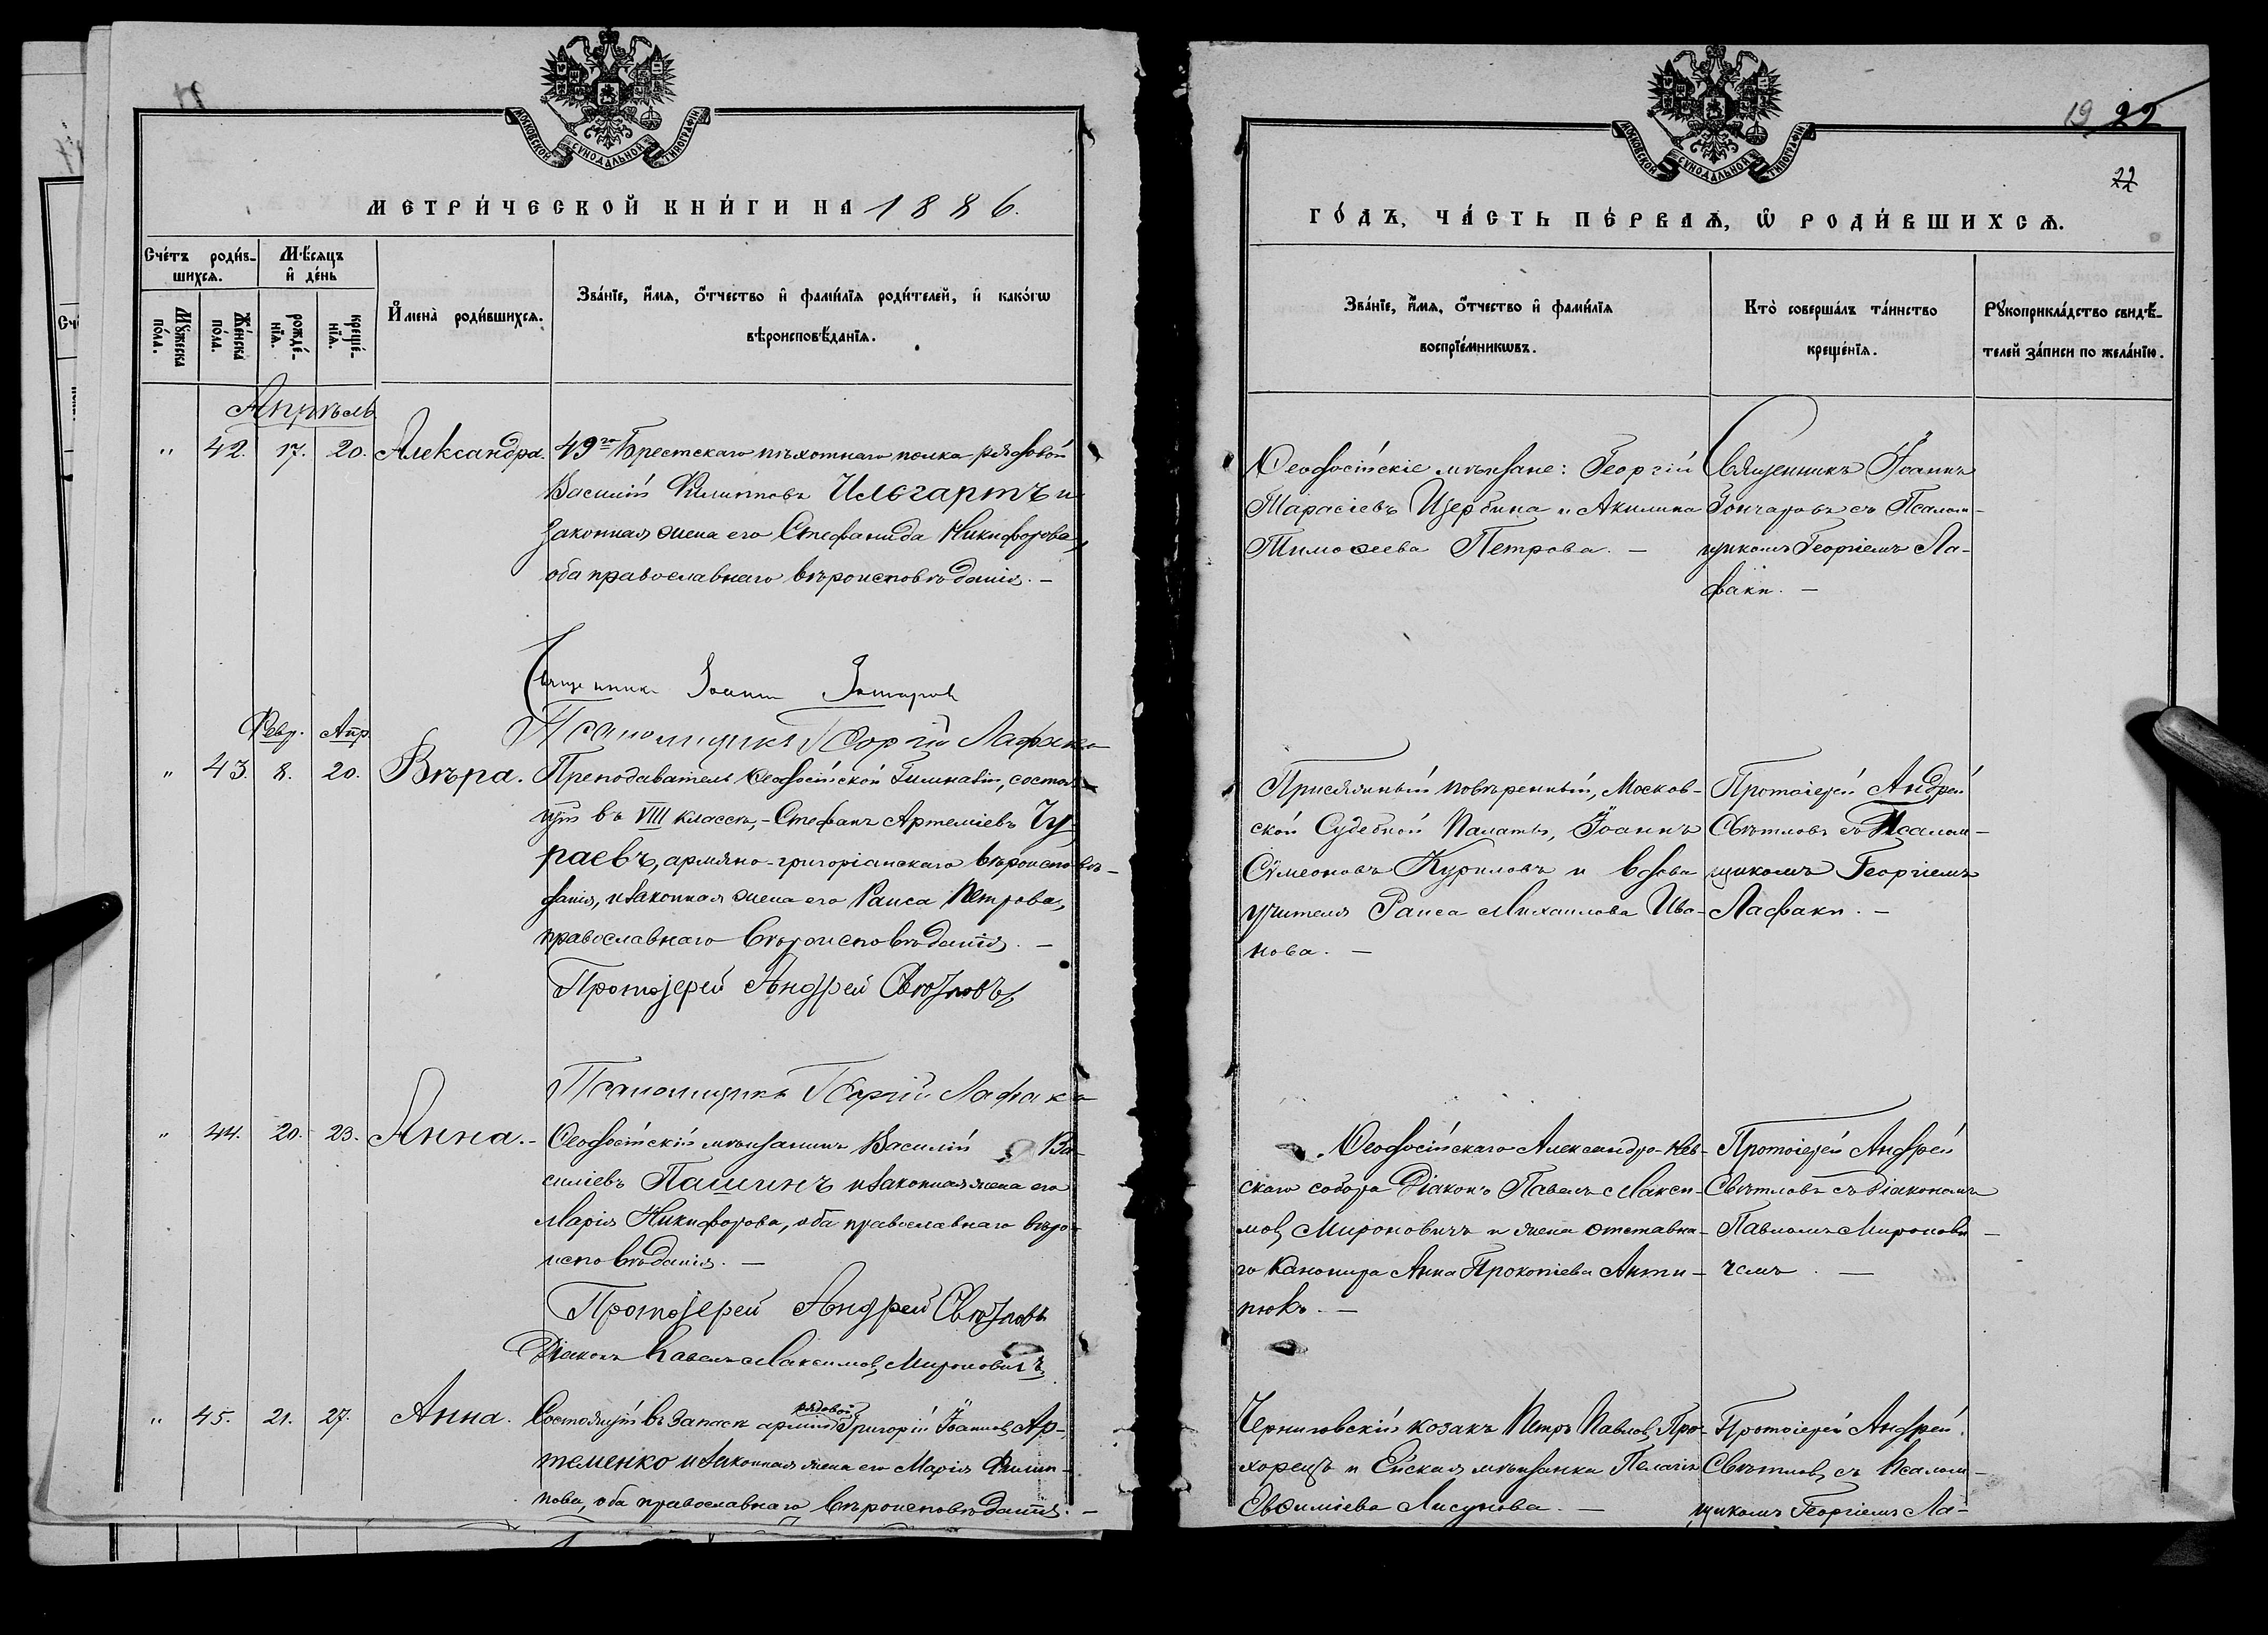 МОСКОВСКОЙ СѴНОДАЛЬНОЙ ТИПОГРАФІИ
МЕТРИ́ЧЕСКОЙ КНИ́ГИ НА 1886.
Сче́тъ роди́в-
шихсѧ.
Мѣ́сѧцъ
и҆ де́нь
Мꙋ́жеска
по́ла.
Же́нска
по́ла.
рожде́-
нїѧ.
креще́-
нїѧ.
И҆мена̀ роди́вшихсѧ.
Зва́нїе, и҆́мѧ, ѻ҆́тчество и҆ фами́лїѧ роди́телей, и҆ како́гѡ
вѣроисповѣ́данїѧ.
Апрѣль
" 42. 17. 20. Александра.
49го Брестскаго пѣхотнаго полка рядовой
Василій Филипповъ Илєгартъ и
законная жена его Стефанида Никифорова,
оба православнаго вѣроисповѣданія. —
Священникъ Іоаннъ Гончаровъ
Псаломщикъ Георгій Лафаки
Февр. Апр.
" 43. 8. 20. Вѣра.
Преподаватель Ѳеодосійской Гимназіи, состоя-
щій въ VIII классѣ, - Стефанъ Артеміевъ Чу-
раевъ, армяно-григоріанскаго вѣроисповѣ-
данія, и законная жена его Раиса Петрова,
православнаго вѣроисповѣданія. —
Протоіерей Андрей Свѣтловъ
Псаломщикъ Георгій Лафаки
" 44. 20. 23. Анна. -
Ѳеодосійскій мѣщанинъ Василій Ва-
силіевъ Пашинъ и законная жена его
Марія Никифорова, оба православнаго вѣро-
исповѣданія. —
Протоіерей Андрей Свѣтловъ
Діаконъ Павелъ Максимовъ Мироновичъ
" 45. 21. 27. Анна.
рядовой
Состоящій въ запасѣ арміи Григорій Іоанновъ Ар-
теменко и законная жена его Марія Филип-
пова, оба православнаго вѣроисповѣданія. —
МОСКОВСКОЙ СѴНОДАЛЬНОЙ ТИПОГРАФІИ
19 22
22
ГО́ДЪ, ЧА́СТЬ ПЕ́РВАѦ, Ѡ҆ РОДИ́ВШИХСѦ.
Зва́нїе, и҆́мѧ, ѻ҆́тчество и҆ фами́лїѧ
воспрїе́мникѡвъ.
Кто̀ соверша́лъ та́инство
креще́нїѧ.
Рꙋкоприкла́дство свидѣ́-
телей за́писи по жела́нїю.
Ѳеодосійскіе мѣщане: Георгій
Тарасіевъ Щербина и Акилина
Тимоѳеева Петрова. —
Священникъ Іоаннъ
Гончаровъ съ Псалом-
щикомъ Георгіемъ Ла-
факи. —
Присяжный повѣренный, Москов-
ской Судебной Палаты, Іоаннъ
Сѵмеоновъ Куриловъ и вдова
учителя Раиса Михаилова Ива-
нова. —
Протоіерей Андрей
Свѣтловъ съ Псалом-
щикомъ Георгіемъ
Лафаки. —
Ѳеодосійскаго Александро-Нев-
скаго собора Діаконъ Павелъ Макси-
мовъ Мироновичъ и жена отставна-
го канонира Анна Прокопіева Анти-
пюкъ. —
Протоіерей Андрей
Свѣтловъ съ Діакономъ
Павломъ Миронови-
чемъ. —
Черниговскій козакъ Петръ Павловъ Про-
хорецъ и Ейская мѣщанка Пелагія
Евѳиміева Лисунова. —
Протоіерей Андрей
Свѣтловъ съ Псалом-
щикомъ Георгіемъ Ла-